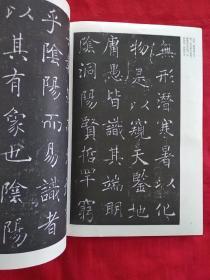 無形潛寒暑以化
物是以窺天鑒地
庸愚皆識其端明
陰洞陽賢哲罕窮
乎陰陽而易識者
以其有象也陰陽